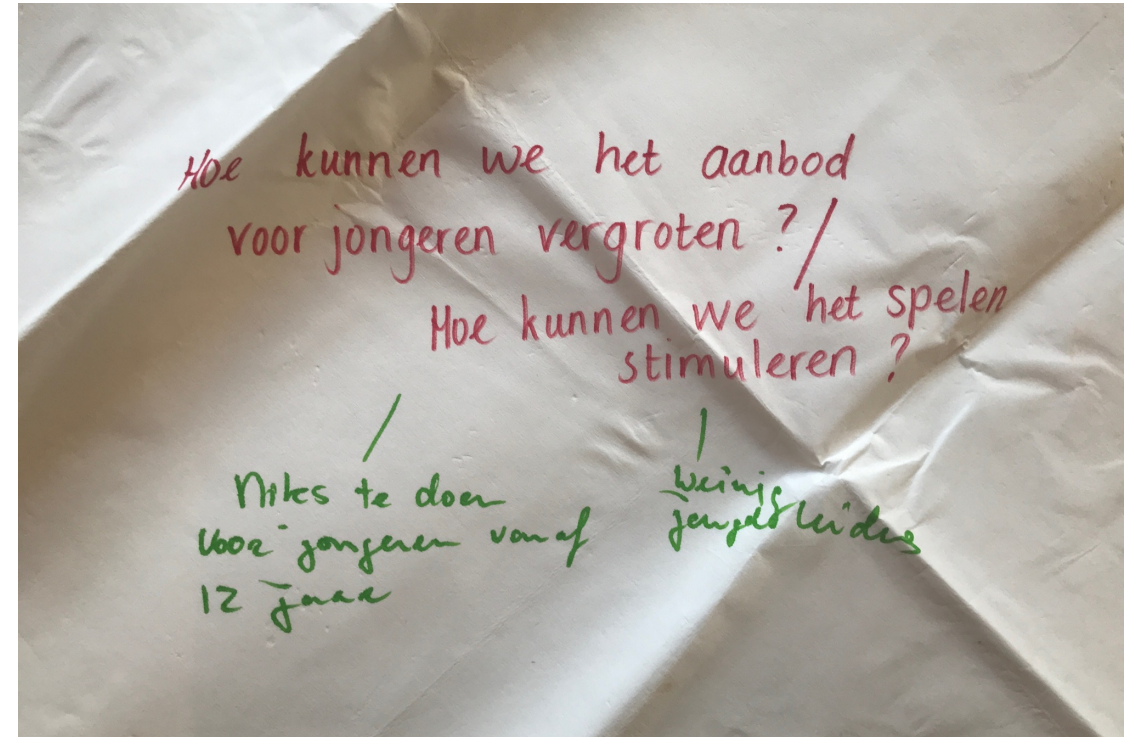 Hoe kunnen we het aanbod
voor jongeren vergroten ? /
Hoe kunnen we het spelen
stimuleren ?
Niks te doen
voor jongeren vanaf
12 jaar
weinig
jeugdleiders